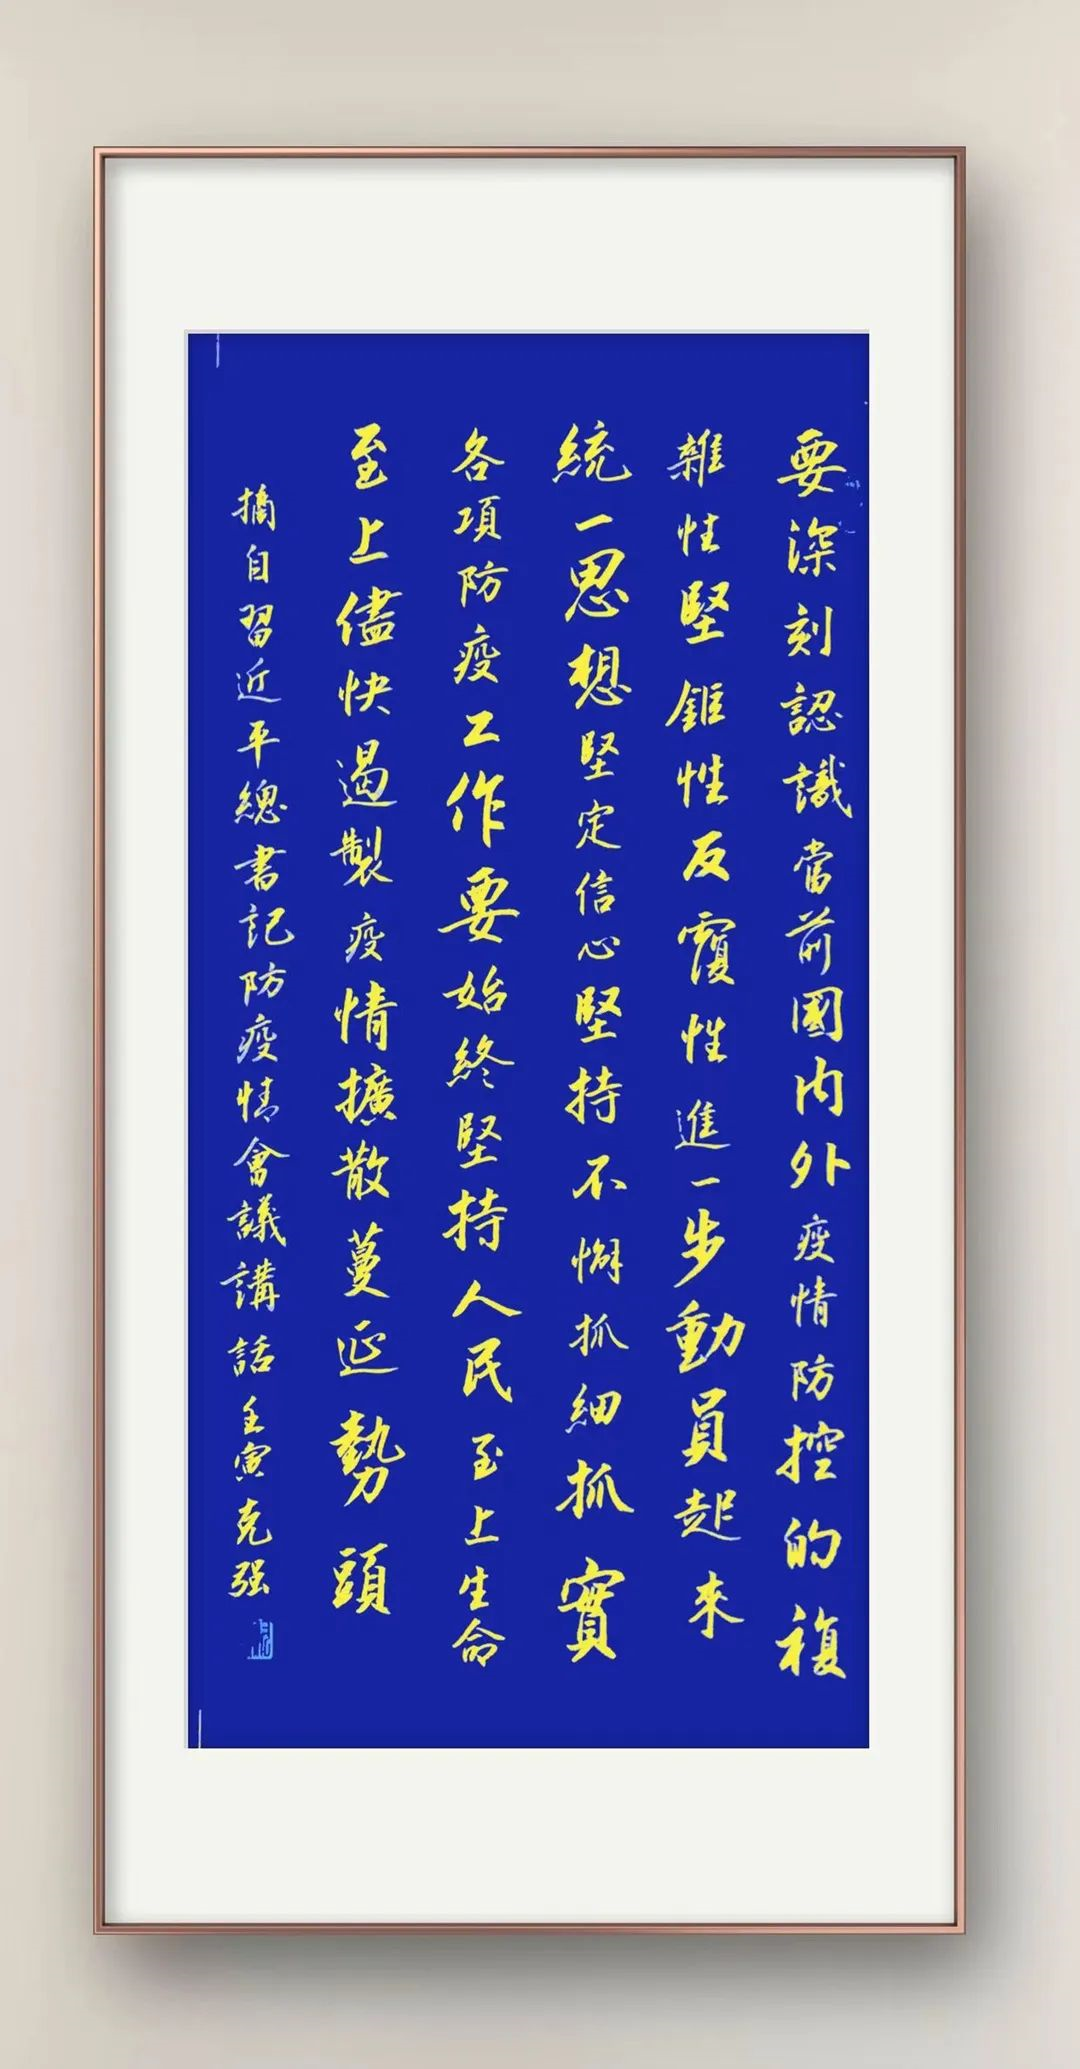 要深刻認識當前國內外疫情防控的複
雜性堅鉅性反覆性進一步動員起來
統一思想堅定信心堅持不懈抓細抓實
各項防疫工作要始終堅持人民至上生命
至上儘快遏製疫情擴散蔓延勢頭
摘自習近平總書記防疫情會議講話壬寅克强